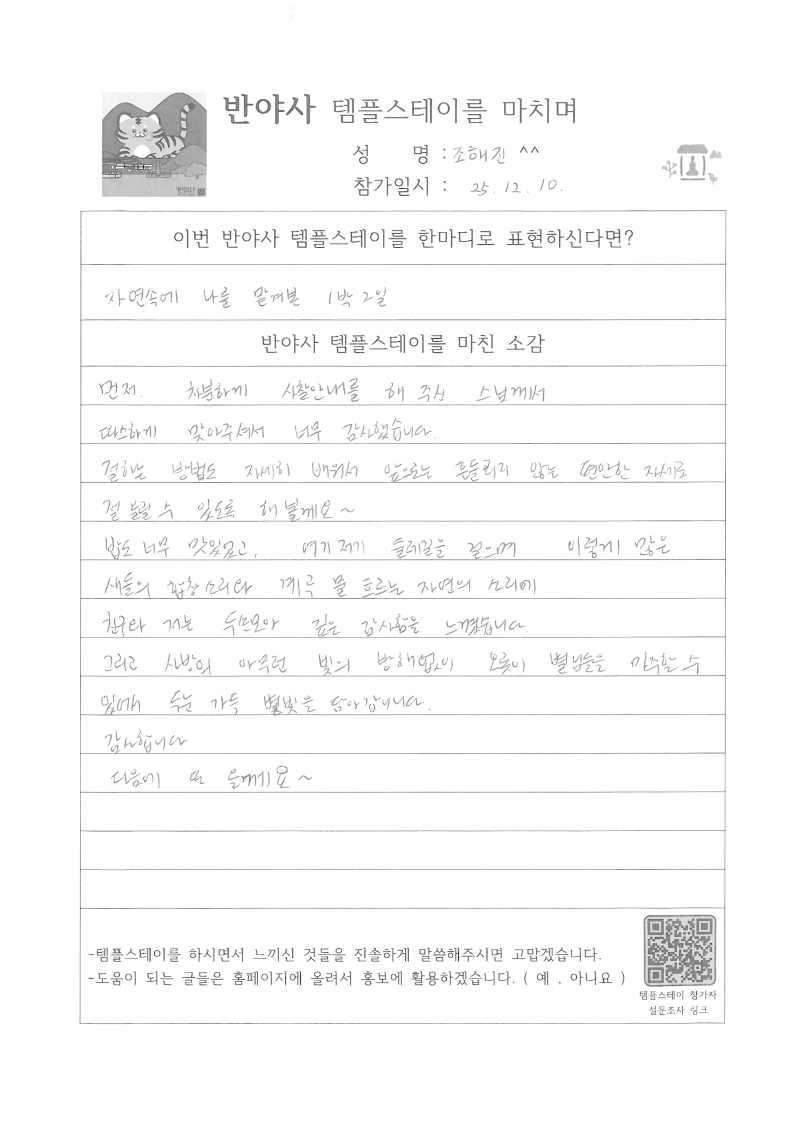 반야사 템플스테이를 마치며
성 명 : 조해진 ^^
참가일시 : 25. 12. 10.
이번 반야사 템플스테이를 한마디로 표현하신다면?
자연속에 나를 맡겨본 1박 2일
반야사 템플스테이를 마친 소감
먼저. 차분하게 사찰안내를 해 주신 스님께서
따스하게 맞아주셔서 너무 감사했습니다.
절하는 방법도 자세히 배워서 앞으로는 흔들리지 않는 편안한 자세로
절 올릴 수 있도록 해 볼게요~
밥도 너무 맛있었고, 여기 저기 둘레길을 걸으며 이렇게 많은
새들의 합창소리와 계곡 물 흐르는 자연의 소리에
친구와 저는 두손모아 깊은 감사함을 느꼈습니다.
그리고 사방의 아무런 빛의 방해없이 오롯이 별님들을 마주할 수
있어서 두눈 가득 별빛을 담아갑니다.
감사합니다
다음에 또 올께요~
-템플스테이를 하시면서 느끼신 것들을 진솔하게 말씀해주시면 고맙겠습니다.
-도움이 되는 글들은 홈페이지에 올려서 홍보에 활용하겠습니다. ( 예 , 아니요 )
템플스테이 참가자
설문조사 링크